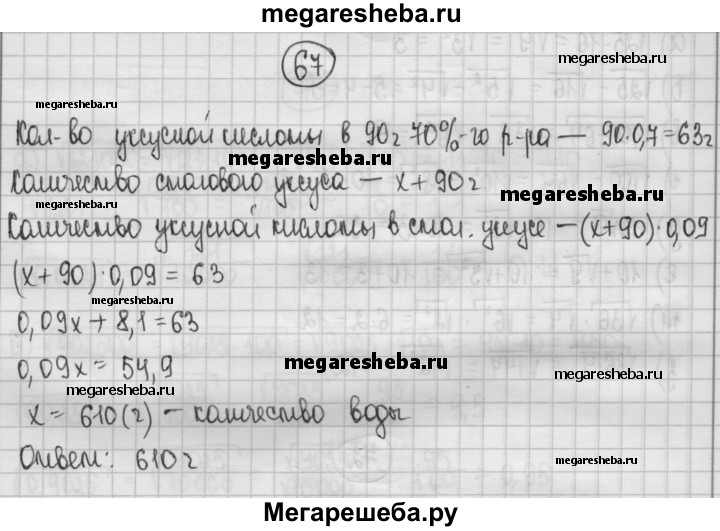 megaresheba.ru
67
megaresheba.ru
megaresheba.ru
Кол-во уксусной кислоты в 90г 70%-го р-ра — 90·0,7=63г
megaresheba.ru
Количество столового уксуса — x+90г
megaresheba.ru
Количество уксусной кислоты в стол. уксусе —(x+90)·0,09
(x+90)·0,09=63
megaresheba.ru
0,09x+8,1=63
0,09x=54,9
megaresheba.ru
megaresheba.ru
megaresheba.ru
x=610(г) — количество воды
Ответ: 610г
megaresheba.ru
megaresheba.ru
Мегарешеба.ру